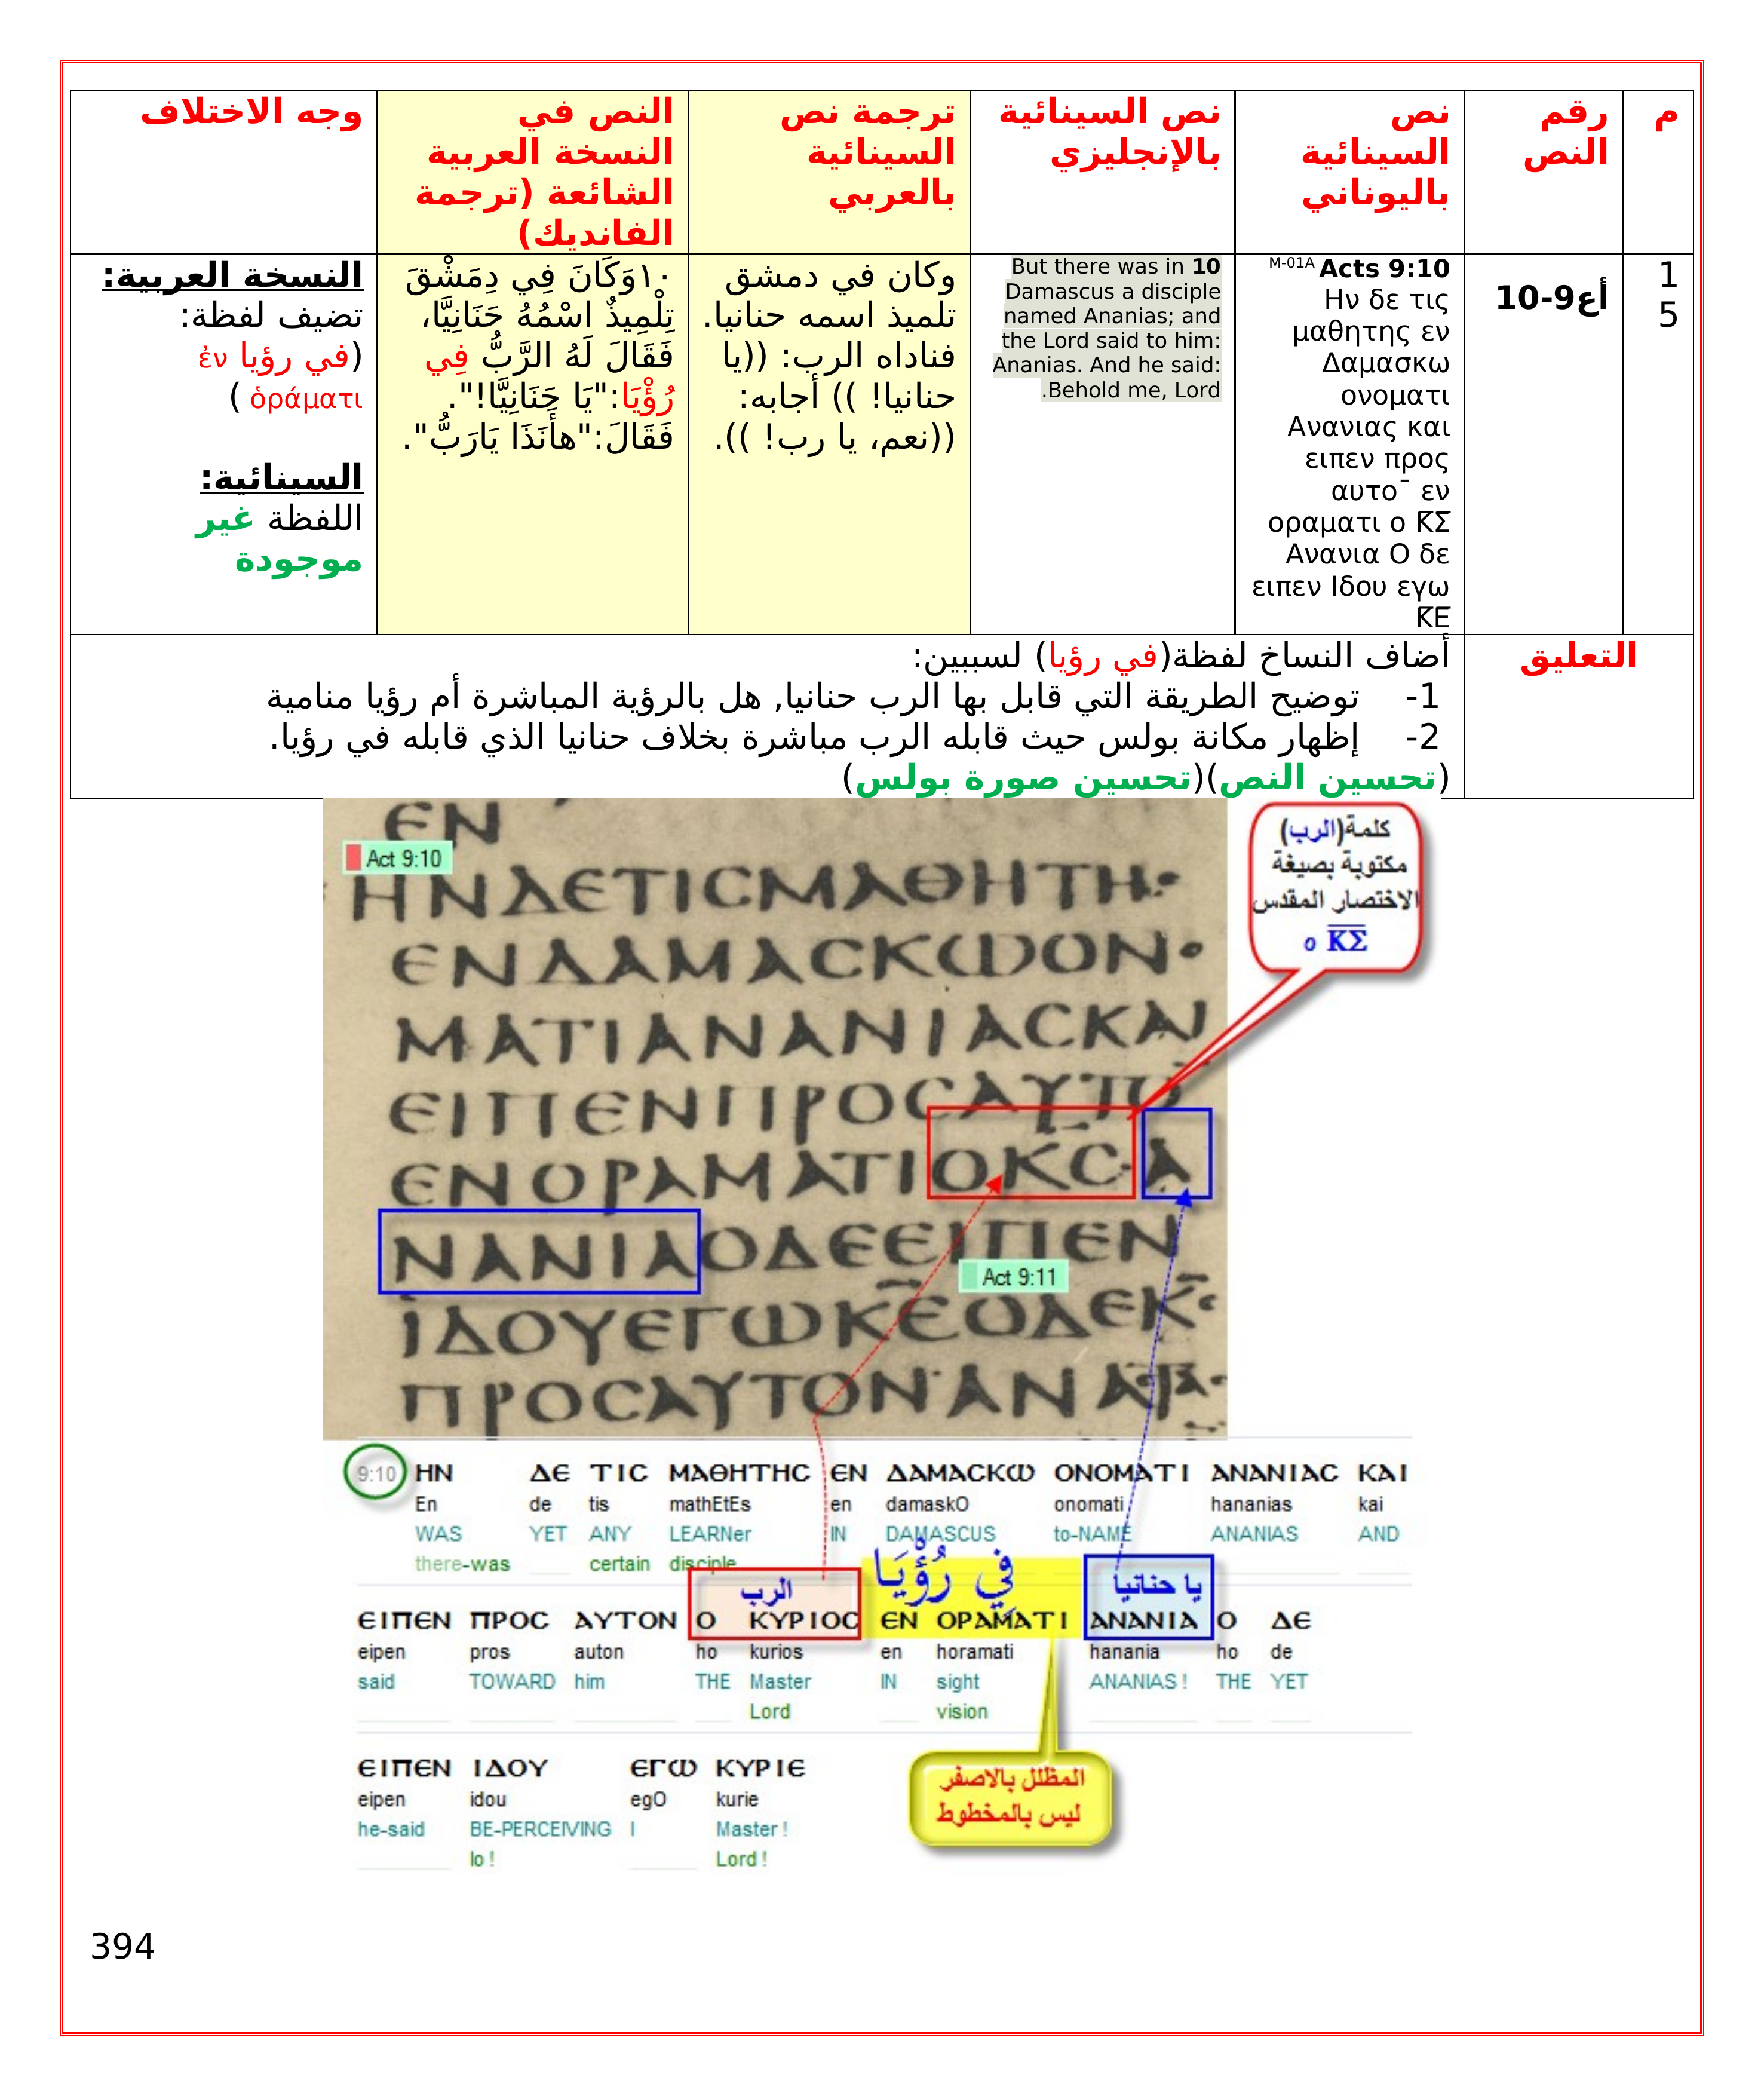 م
رقم
النص
نص
السينائية
باليوناني
نص السينائية
بالإنجليزي
ترجمة نص
السينائية
بالعربي
النص في
النسخة العربية
الشائعة (ترجمة
الفانديك)
وجه الاختلاف
1
5
أع9-10
M-01A Acts 9:10
Ην δε τις
μαθητης εν
Δαμασκω
ονοματι
Ανανιας και
ειπεν προς
αυτο¯ εν
οραματι ο Κ̅Σ̅
Ανανια Ο δε
ειπεν Ιδου εγω
Κ̅Ε̅
10 But there was in
Damascus a disciple
named Ananias; and
the Lord said to him:
Ananias. And he said:
Behold me, Lord.
وكان في دمشق
تلميذ اسمه حنانيا.
فناداه الرب: ((يا
حنانيا! )) أجابه:
((نعم، يا رب! )).
١٠وَكَانَ فِي دِمَشْقَ
تِلْمِيذٌ اسْمُهُ حَنَانِيَّا،
فَقَالَ لَهُ الرَّبُّ فِي
رُؤْيَا:"يَا حَنَانِيَّا!".
فَقَالَ:"هأَنَذَا يَارَبُّ".
النسخة العربية:
تضيف لفظة:
(في رؤيا ἐν
ὁράματι )
السينائية:
اللفظة غير
موجودة
التعليق
أضاف النساخ لفظة(في رؤيا) لسببين:
1- توضيح الطريقة التي قابل بها الرب حنانيا, هل بالرؤية المباشرة أم رؤيا منامية
2- إظهار مكانة بولس حيث قابله الرب مباشرة بخلاف حنانيا الذي قابله في رؤيا.
(تحسين النص)(تحسين صورة بولس)
كلمة(الرب)
مكتوبة بصيغة
الاختصار المقدس
ο Κ̅Σ̅
ЄΝ
Act 9:10
ΗΝΔЄΤΙCΜΑΘΗΤΗ
ЄΝΔΑΜΑCΚωΟΝ
ΜΑΤΙΑΝΑΝΙΑCΚΑΙ
ЄΙΠЄΝΠΡΟCΑΥΤΟ
ЄΝΟΡΑΜΑΤΙΟΚCΑ
ΝΑΝΙΑΟΔЄЄΙΠЄΝ
Act 9:11
ΙΔΟΥЄΓωΚЄΟΔЄΚC
ΠΡΟCΑΥΤΟΝΑΝΑ
9:10 ΗΝ ΔЄ ΤΙC ΜΑΘΗΤΗC ЄΝ ΔΑΜΑCΚω ΟΝΟΜΑΤΙ ΑΝΑΝΙΑC ΚΑΙ
En de tis mathEtEs en damaskO onomati hananias kai
WAS YET ANY LEARNer IN DAMASCUS to-NAME ANANIAS AND
there-was certain disciple
الرب فِي رُؤْيَا يا حنانيا
ЄΙΠЄΝ ΠΡΟC ΑΥΤΟΝ Ο ΚΥΡΙΟC ЄΝ ΟΡΑΜΑΤΙ ΑΝΑΝΙΑ Ο ΔЄ
eipen pros auton ho kurios en horamati hanania ho de
said TOWARD him THE Master IN sight ANANIAS ! THE YET
Lord vision
ЄΙΠЄΝ ΙΔΟΥ ЄΓω ΚΥΡΙЄ
eipen idou egO kurie
he-said BE-PERCEIVING I Master !
lo ! Lord !
المظلل بالاصفر
ليس بالمخطوط
394